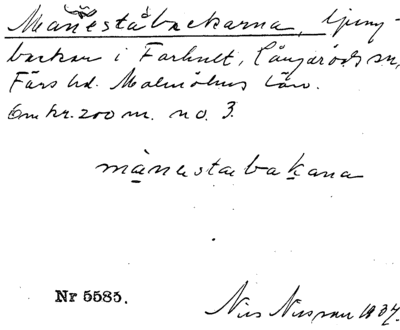 Manestabackarna, ljung-
backar i Farhult, Långaröds sn,
Färs hd. Malmöhus län.
Omkr. 200 m. no. 3.
månestabakana
Nr 5585.
Nils Nilsson 1934.